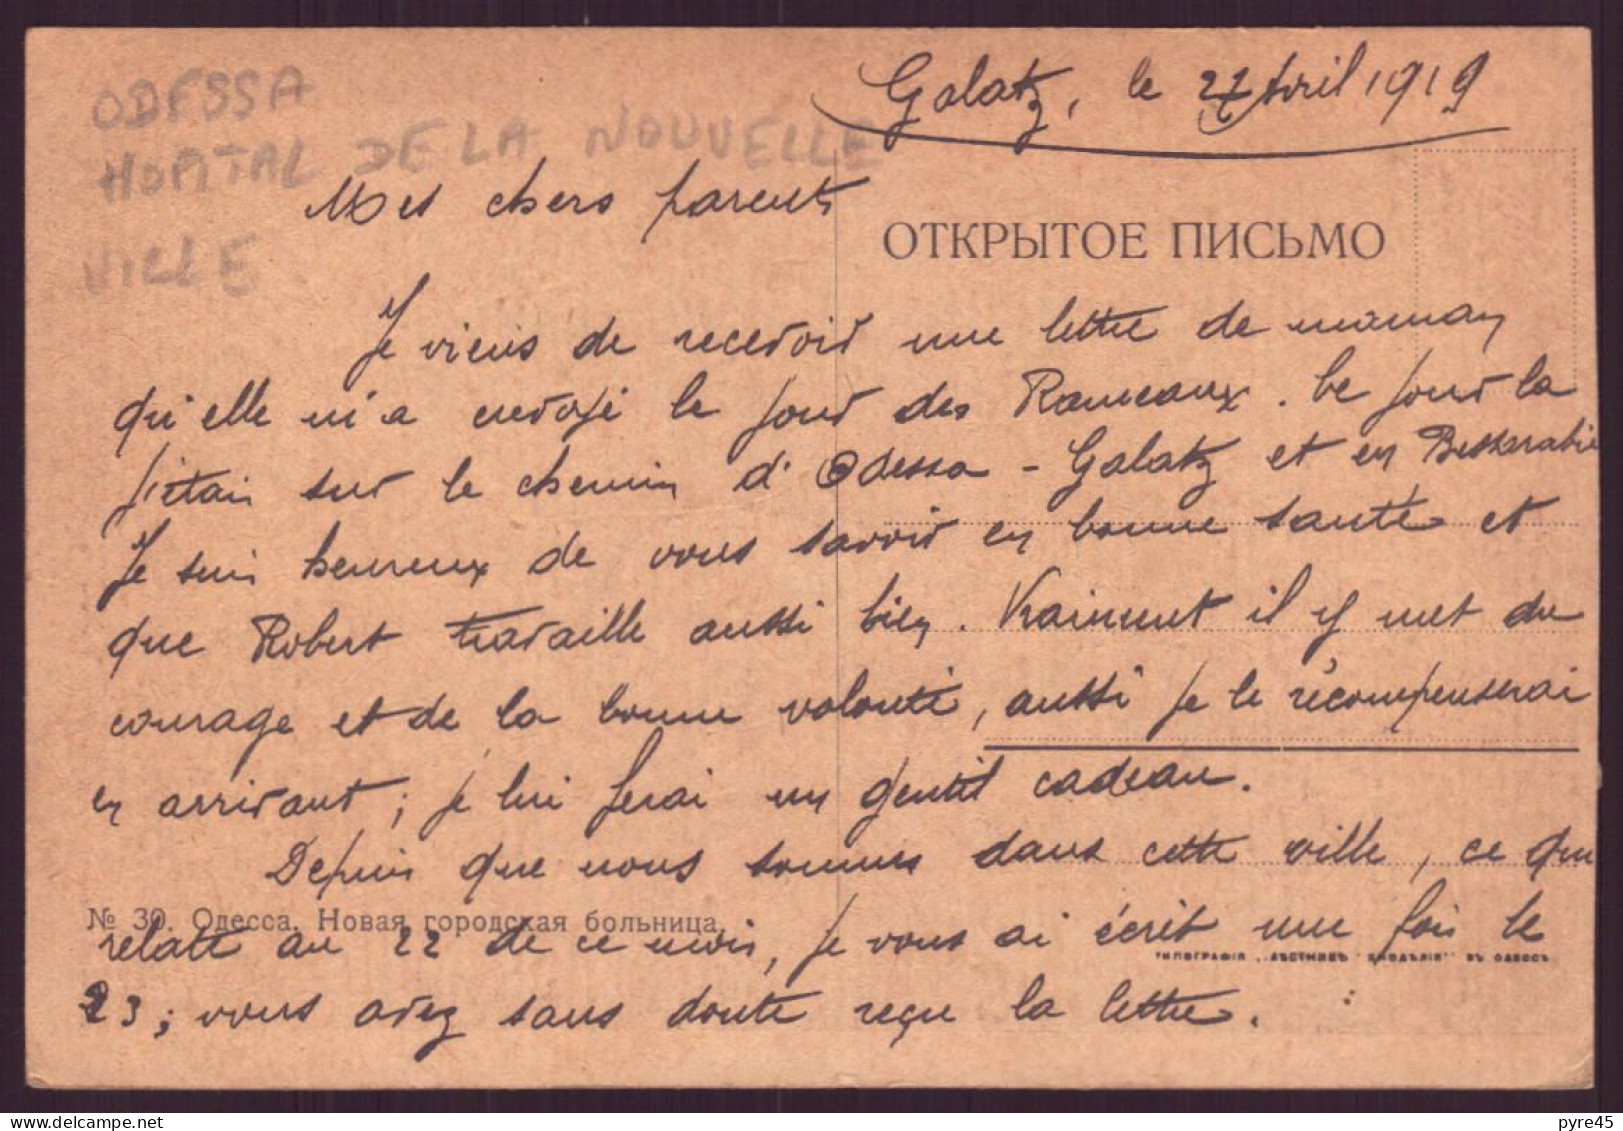 ODESSA
HOPITAL DE LA NOUVELLE
VILLE
Galatz, le 27 Avril 1919
Mes chers parents
ОТКРЫТОЕ ПИСЬМО
Je viens de recevoir une lettre de maman
qu'elle m'a envoyé le jour des Rameaux. Ce jour la
j'étais sur le chemin d'Odessa - Galatz et en Bessarabie
Je suis heureux de vous savoir en bonne santé et
que Robert travaille aussi bien. Vraiment il y met du
courage et de la bonne volonté, aussi je le récompenserai
en arrivant; je lui ferai un gentil cadeau.
Depuis que nous sommes dans cette ville, ce qui
№ 30. Одесса. Новая городская больница.
relate au 22 de ce mois, je vous ai écrit une fois le
23; vous avez sans doute reçu la lettre.
pyre45